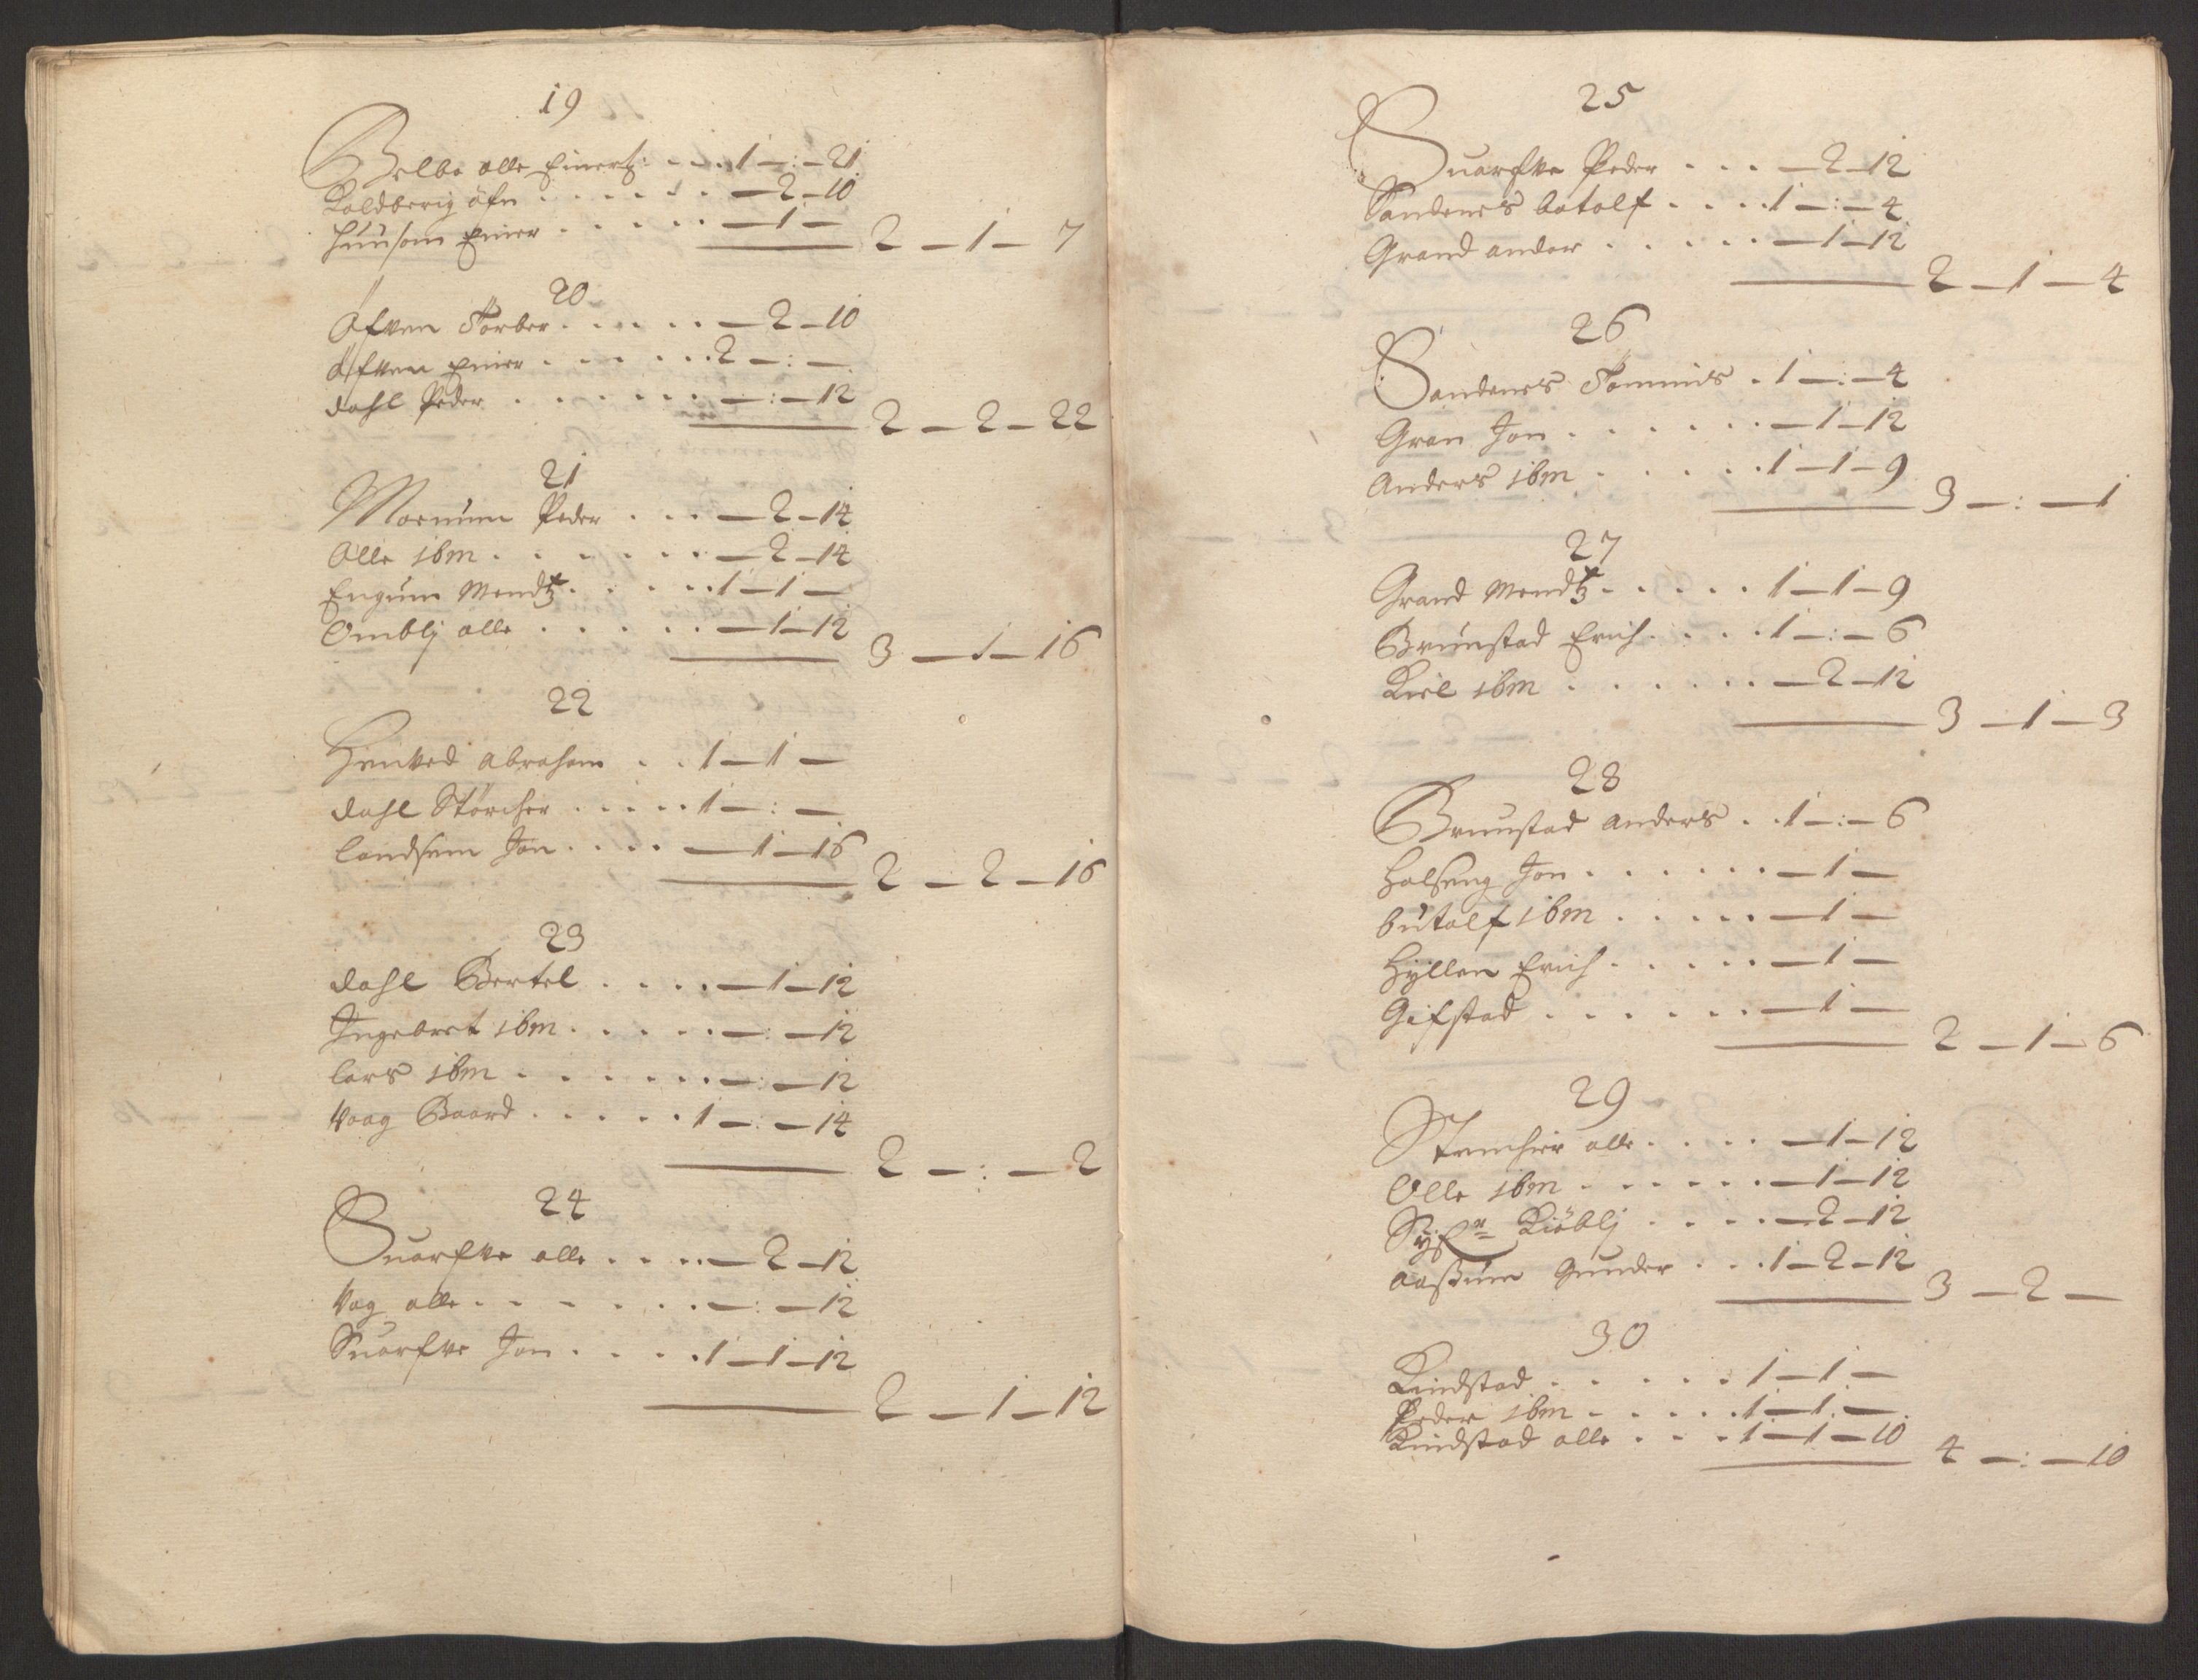 19
Selbo olle Einertz: . . . 1 – : – 21
Koldberig öfn . . . . . . – 2 – 10
Huusom Einer . . . . . – 1 –
2 – 1 – 7
20
Öfven Torber . . . . . – 2 – 10
Öfven Einer . . . . . . 2 – : –
dahl Peder . . . . . . – : – 12
2 – 2 – 22
21
Moenum Peder . . . – 2 – 14
Olle ibm . . . . . . – 2 – 14
Engum Mendtz . . . . . 1 – 1 –
Ombli olle . . . . . – 1 – 12
3 – 1 – 16
22
abraham . . 1 – 1 –
dahl Storcher . . . . . 1 – : –
landsem Jon . . . . – 1 – 16
2 – 2 – 16
23
dahl Bertel . . . . – 1 – 12
Ingebret ibm . . . . . – : – 12
lars ibm . . . . . . – : – 12
Vaag Baard . . . . . 1 – : – 14
2 – : – 2
24
Suarfve olle . . . . – 2 – 12
Vog olle . . . . . . – : – 12
Suarfve Jon . . . . 1 – 1 – 12
2 – 1 – 12
25
Suarfve Peder . . . – 2 – 12
Sandenes botolf . . . . 1 – : – 4
Grand ander . . . . . – 1 – 12
2 – 1 – 4
26
Sandenes Tommis . 1 – : – 4
Gran Jon . . . . . . – 1 – 12
Anders ibm . . . . . 1 – 1 – 9
3 – : – 1
27
Grand Mendtz . . . . . 1 – 1 – 9
Brunstad Erich . . . . 1 – : – 6
Kiel ibm . . . . . . – 2 – 12
3 – 1 – 3
28
Brunstad anders . . 1 – : – 6
Halseng Jon . . . . . . – 1 –
butolf ibm . . . . . – 1 –
Hyllen Erich . . . . . – 1 –
Gifstad . . . . . . – 1 –
2 – 1 – 6
29
olle . . . . – 1 – 12
Olle ibm . . . . . . – 1 – 12
Kiöbli . . . . – 2 – 12
Gunder . . . 1 – 2 – 12
3 – 2 –
30
Kindstad . . . . . 1 – 1 –
Peder ibm . . . . . 1 – 1 –
Kindstad olle . . . 1 – 1 – 10
4 – : – 10